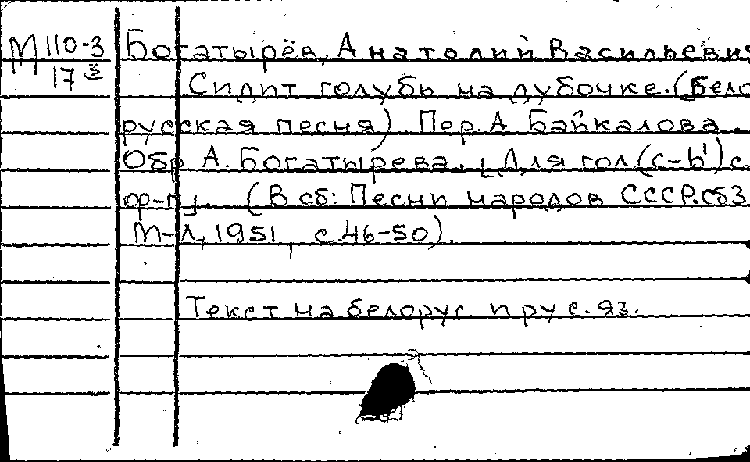 М 110-3 Богатырёв, Анатолий Васильевич
17 Сидит голубь на дубочке. (Бело
русская песня) Пер. А. Байкалова.
Обр. А. Богатырева. [Для гол (с-b¹) с
ор-п]. (В сб: Песни народов СССР. сб 3
М-Л, 1951, с. 46-50).
Текст на белорус. и рус. яз.